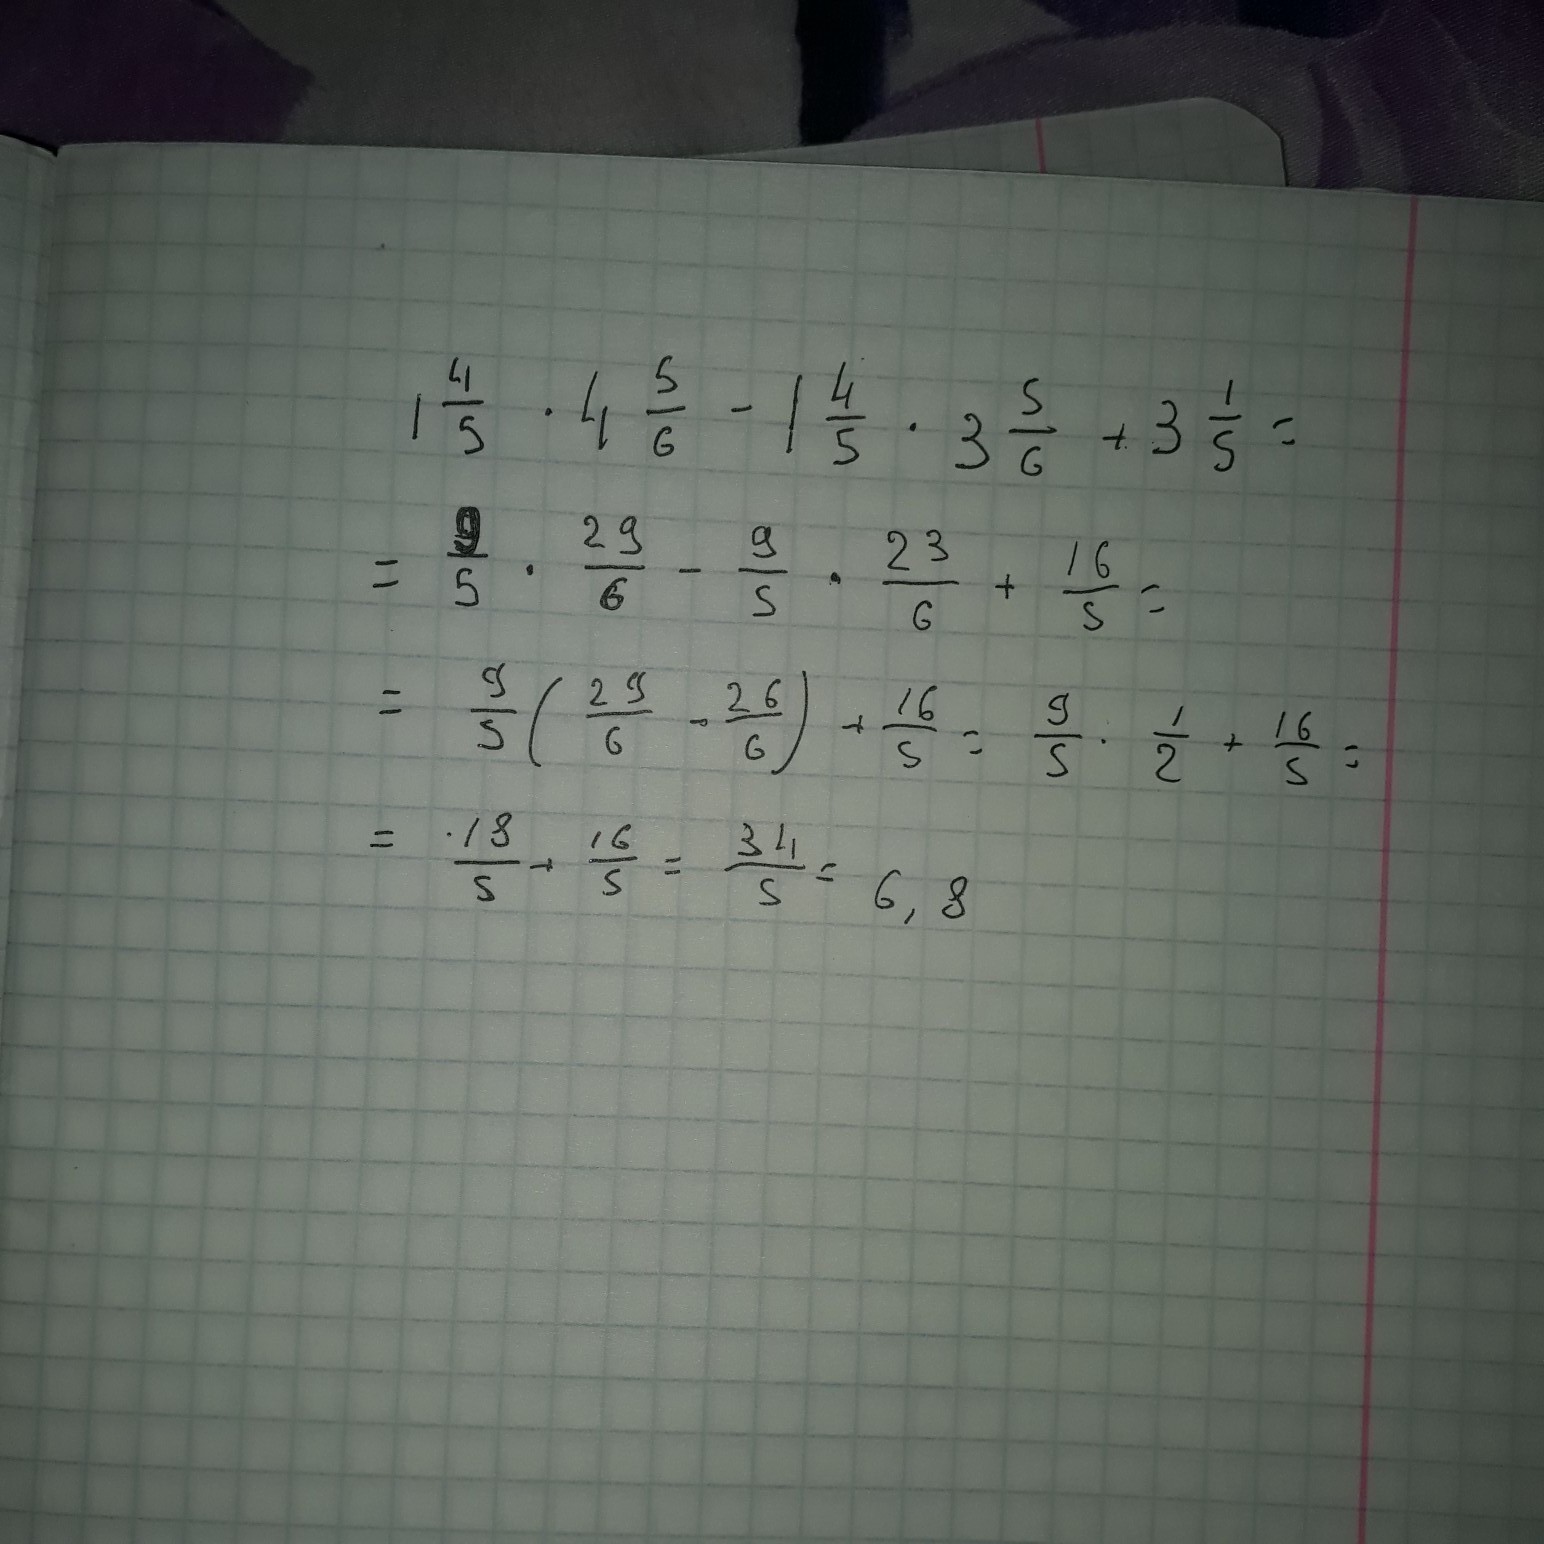 1 4/5 · 4 5/6 - 1 4/5 · 3 5/6 + 3 1/5 =
= 9/5 · 29/6 - 9/5 · 23/6 + 16/5 =
= 9/5 ( 29/6 - 26/6 ) + 16/5 = 9/5 · 1/2 + 16/5 =
= 18/5 + 16/5 = 34/5 = 6,8